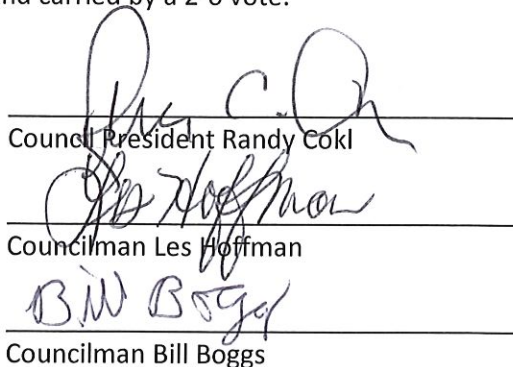 carried by a 2-0 vote.
Council President Randy Cokl
Les Hoffman
Councilman Les Hoffman
Bill Boggs
Councilman Bill Boggs